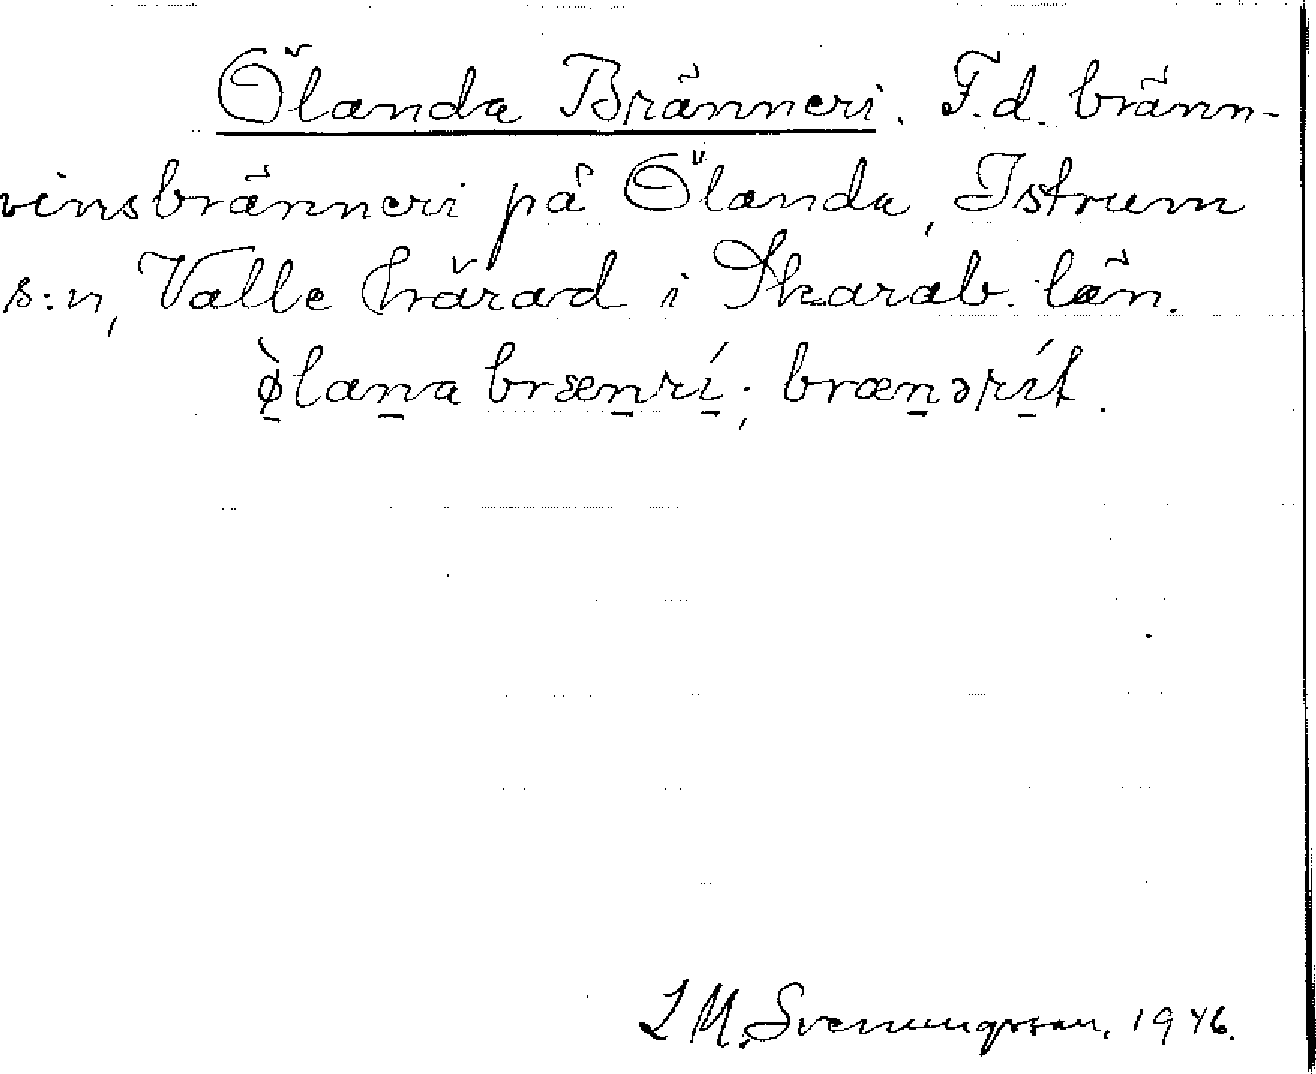 Ölanda Bränneri. F.d. bränn-
vinsbränneri på Ölanda, Istrum
s:n, Valle härad i Skarab. län.
ø̱̀lan̠a bræn̠rí̠; bræn̠ərí̠t.
L M. Svenungsson, 1946.